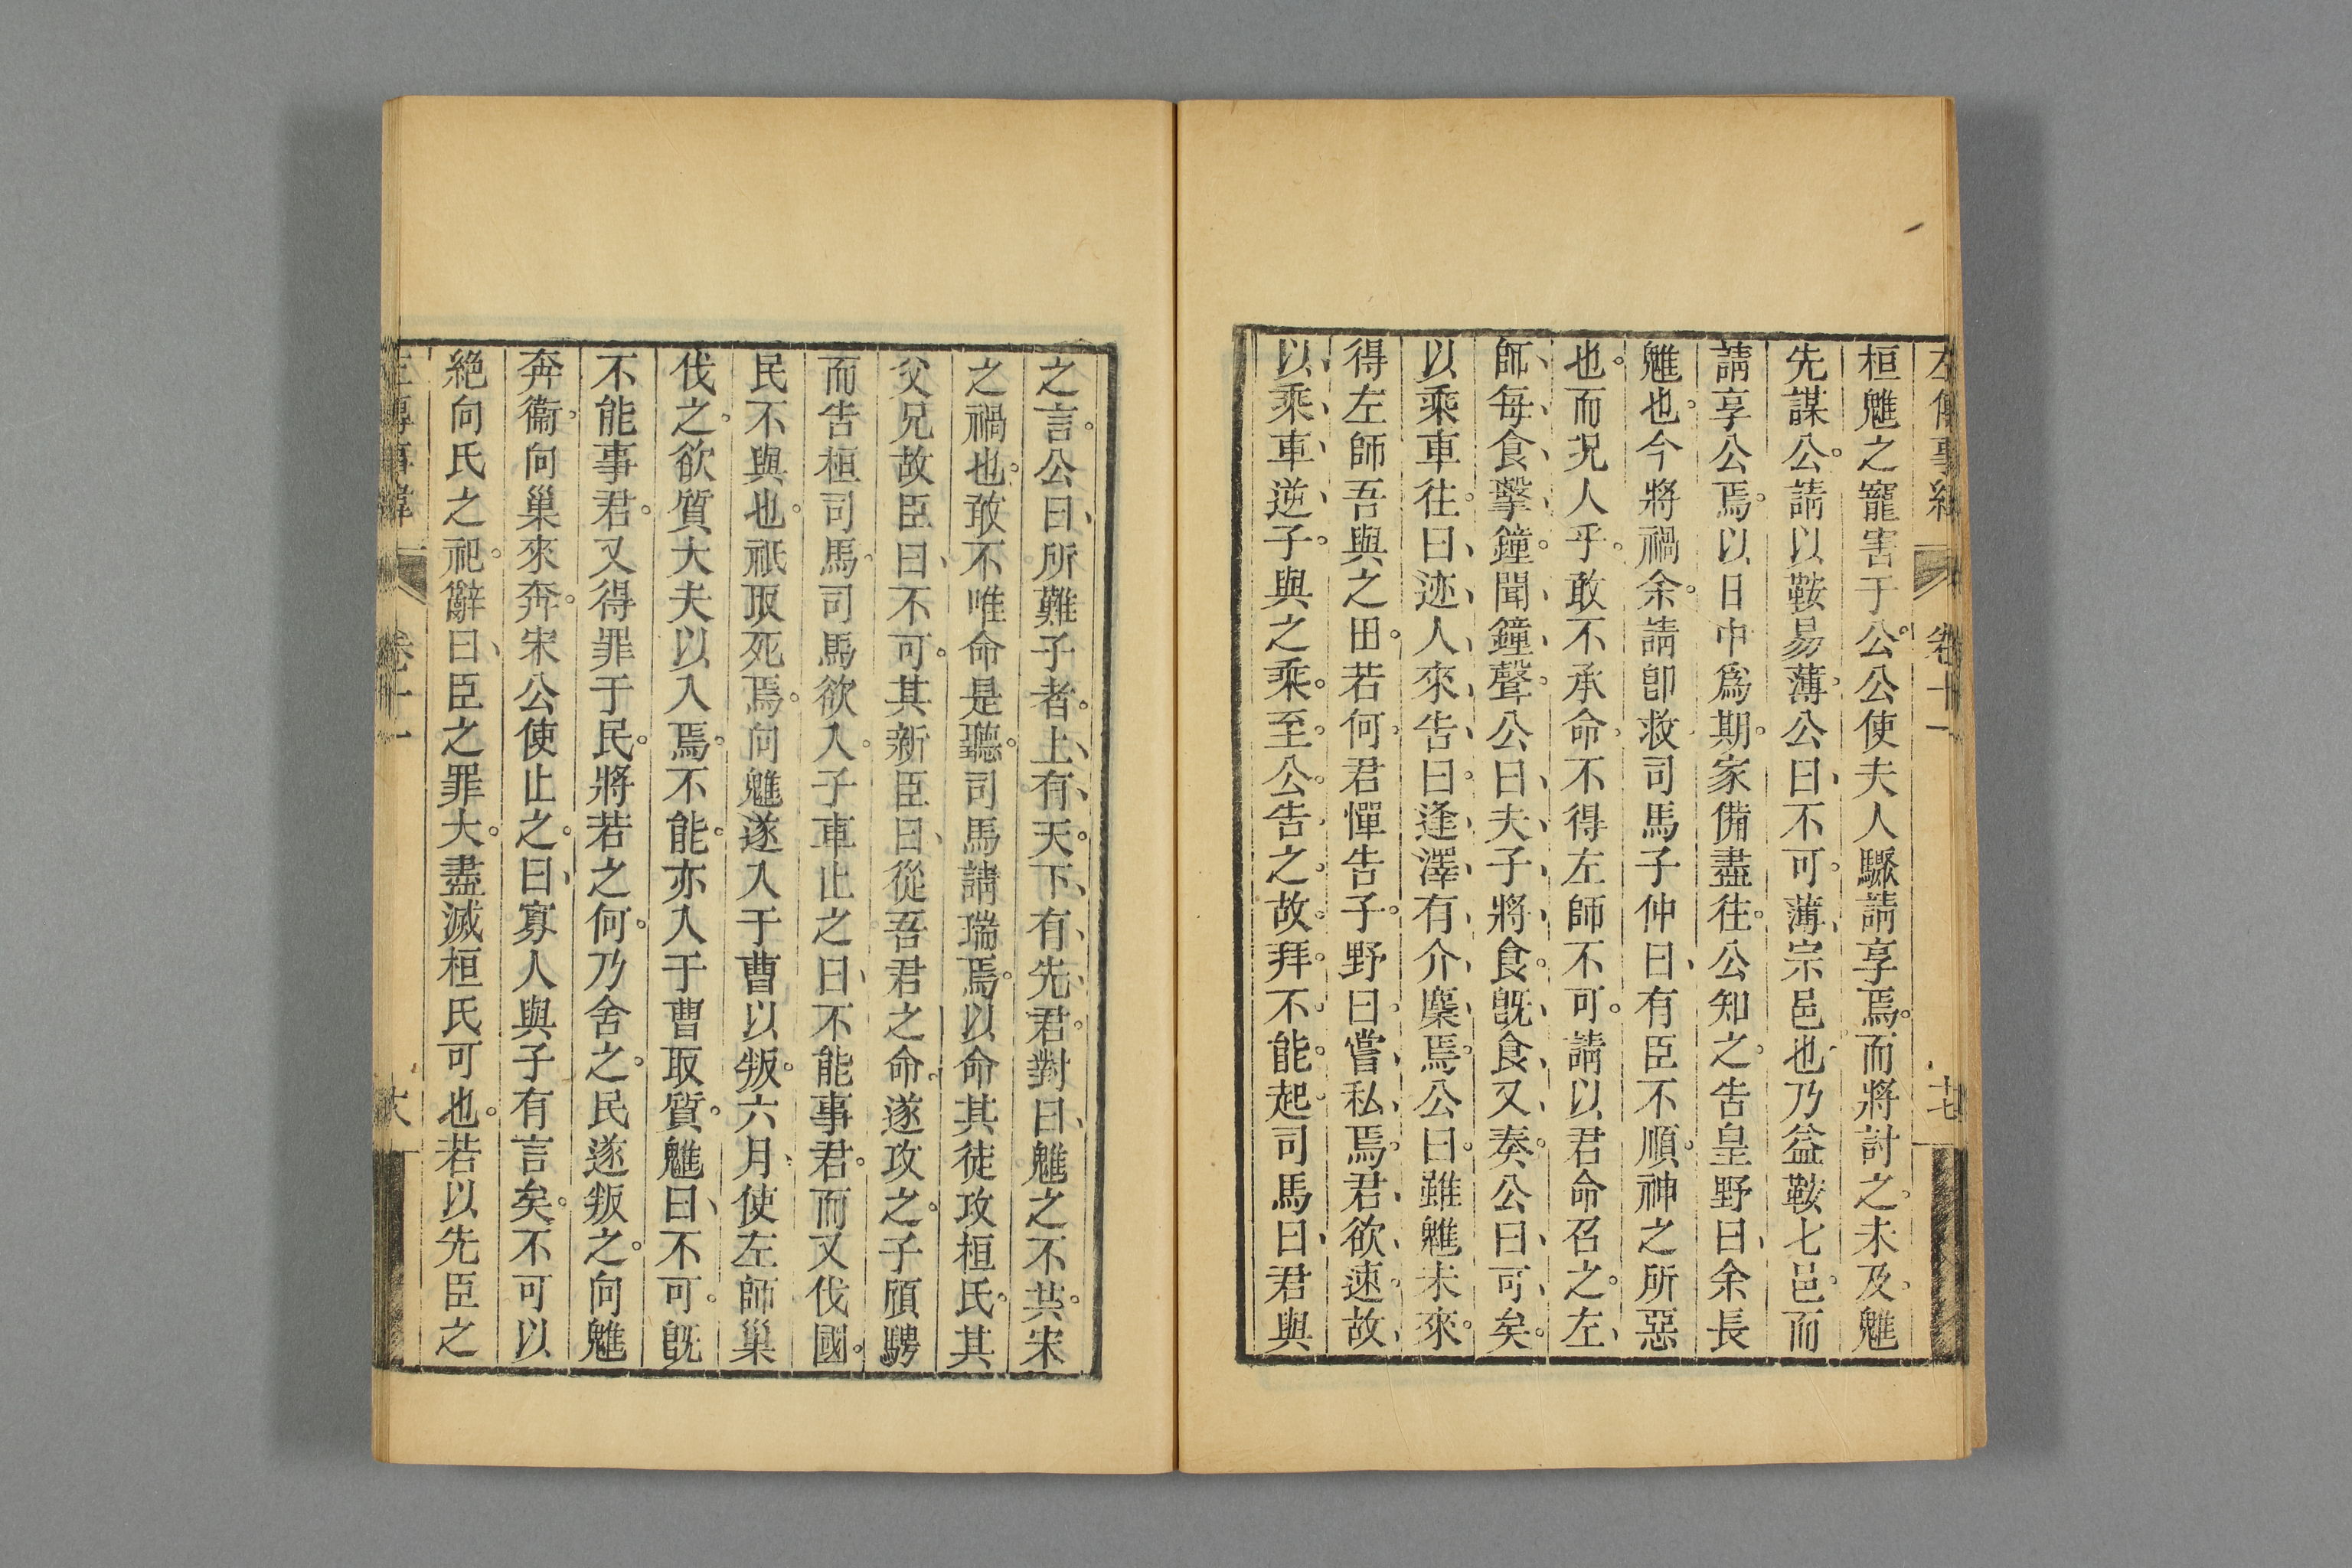 左傳事緯 卷十一 十七
桓魋之寵害于公。公使夫人驟請享焉。而將討之。未及。魋
先謀公。請以鞍易薄。公曰、不可。薄、宗邑也。乃益鞍七邑。而
請享公焉。以日中爲期。家備盡往。公知之。告皇野曰、余長
魋也。今將禍余。請卽救。司馬子仲曰、有臣不順。神之所惡
也。而况人乎。敢不承命。不得左師不可。請以君命召之。左、
師、每、食、擊、鐘。聞、鐘、聲。公曰、夫、子、將、食。旣、食、又、奏。公曰、可、矣。
以乘車往。曰、迹、人、來、告、曰。逢、澤、有、介、麇、焉。公曰。雖魋未來。
得左師吾與之田。若何。君憚告子。野曰。嘗、私、焉。君、欲、速。故、
以、乘、車、逆、子。與之乘。至。公。告之。故。拜。不能。起。司馬曰、君與
之言。公曰、所難子者。上、有、天。下、有、先、君。對曰、魋之不共。宋
之禍也。敢不唯命是聽。司馬請瑞焉。以命其徒攻桓氏。其
父兄故臣曰、不可。其新臣曰、從吾君之命。遂攻之。子頎騁
而告桓司馬。司馬欲入。子車止之曰、不能事君。而又伐國。
民不與也。祇取死焉。向魋遂入于曹以叛。六月、使左師巢
伐之。欲質大夫以入焉。不能。亦入于曹取質。魋曰、不可。旣
不能事君。又得罪于民。將若之何。乃舍之。民遂叛之。向魋
奔衞。向巢來奔。宋公使止之。曰、寡人與子有言矣。不可以
絕向氏之祀。辭曰、臣之罪大。盡滅桓氏可也。若以先臣之
左傳事緯 卷十一 大